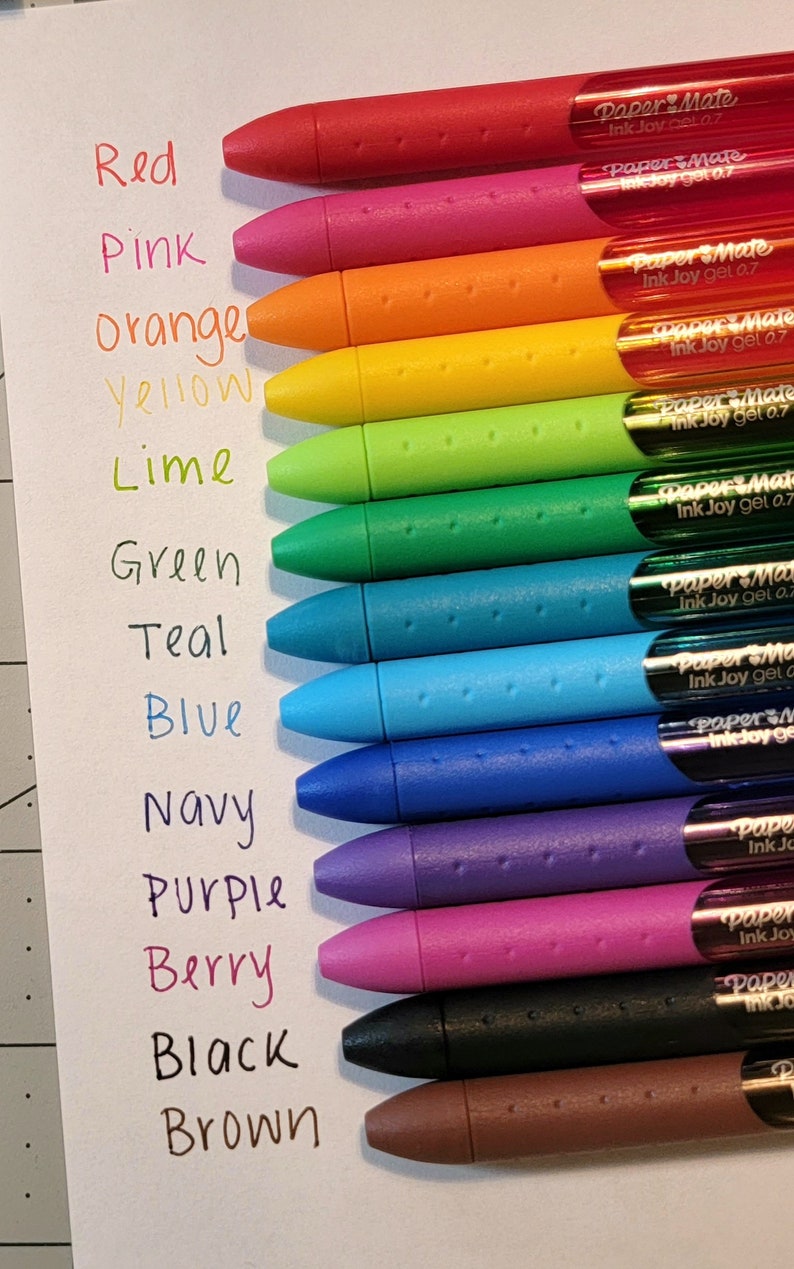 Red
Paper Mate
InkJoy gel 0.7
Pink
Paper Mate
InkJoy gel 0.7
Orange
Paper Mate
InkJoy gel 0.7
Yellow
Paper Mate
InkJoy gel 0.7
Lime
Paper Mate
InkJoy gel 0.7
Green
Paper Mate
InkJoy gel 0.7
Teal
Paper Ma
InkJoy gel 0.
Blue
Paper Ma
InkJoy gel 0
Navy
Paper Ma
InkJoy ge
Purple
Paper
InkJo
Berry
Paper
InkJoy
Black
Paper
InkJo
Brown